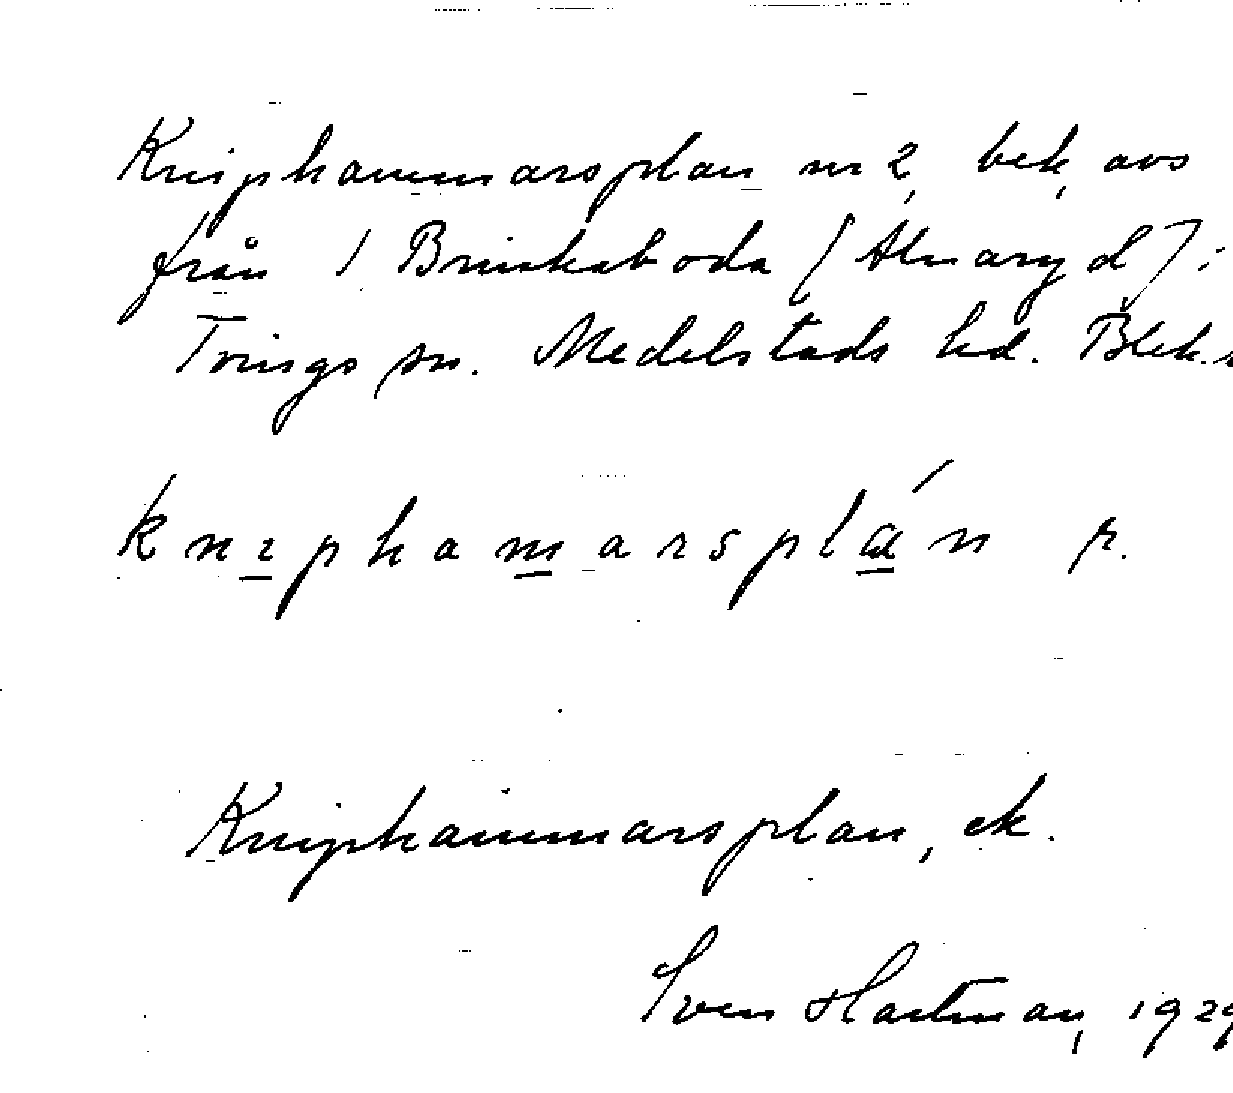 Kniphammarsplan nr 2, bek, avs
från 1 Brinkaboda (Älmaryd) i
Tvings sn. Medelstads hd. Blek.
knɪphamarsplán r.
Kniphammarsplan, ek.
Sven Hartman, 1929